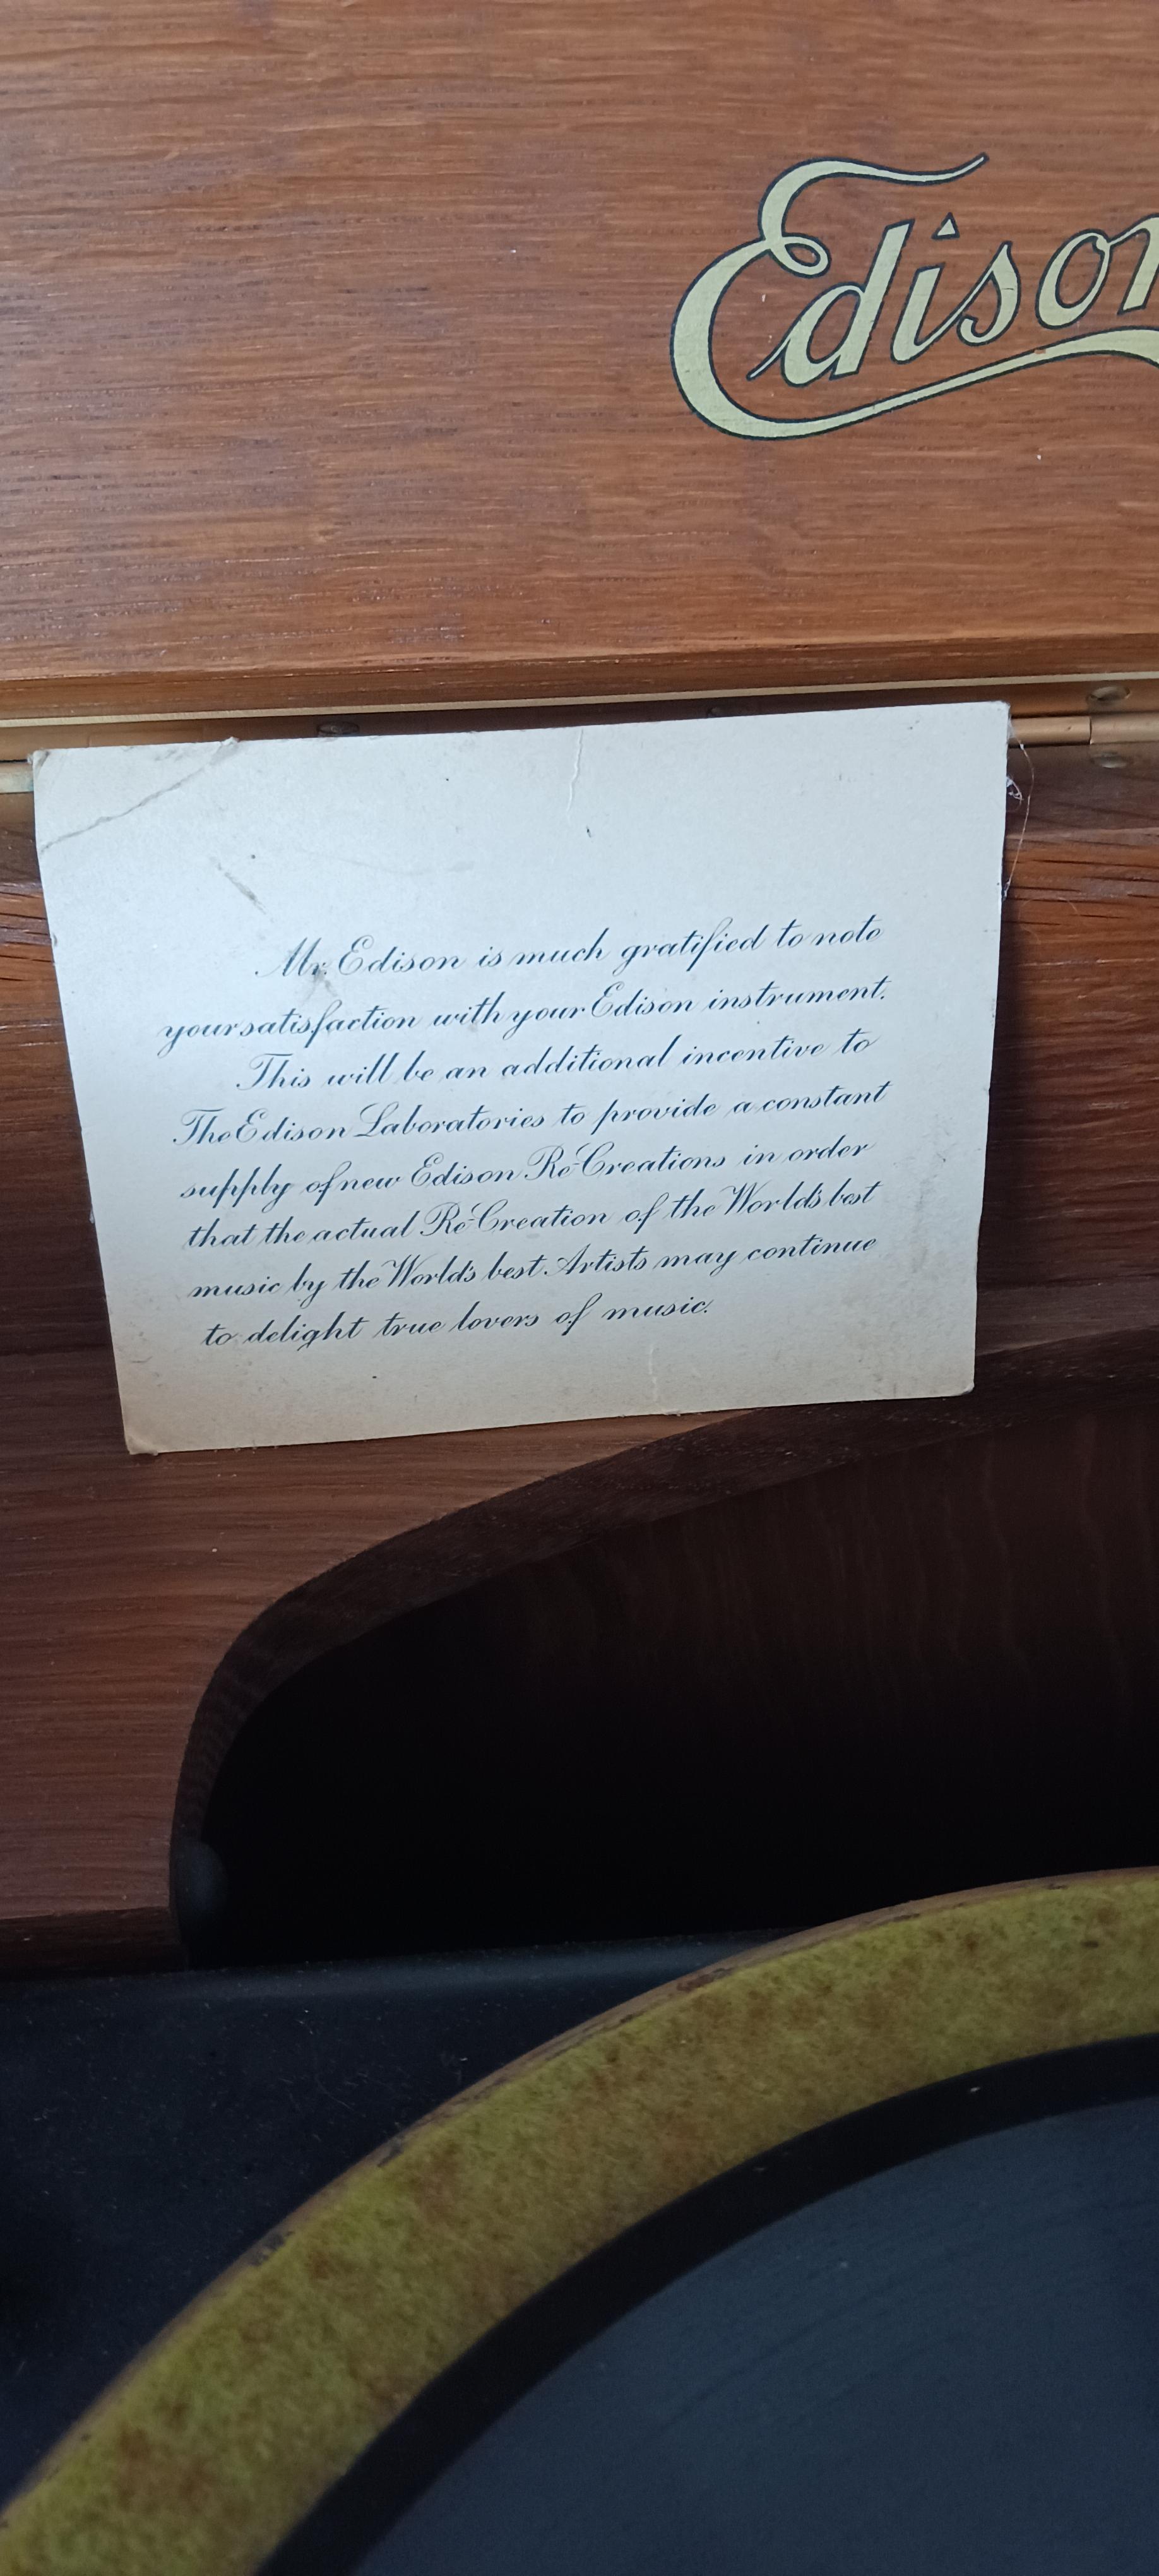 Edison
Mr. Edison is much gratified to note
your satisfaction with your Edison instrument.
This will be an additional incentive to
The Edison Laboratories to provide a constant
supply of new Edison Re-Creations in order
that the actual Re-Creation of the World's best
music by the World's best Artists may continue
to delight true lovers of music.